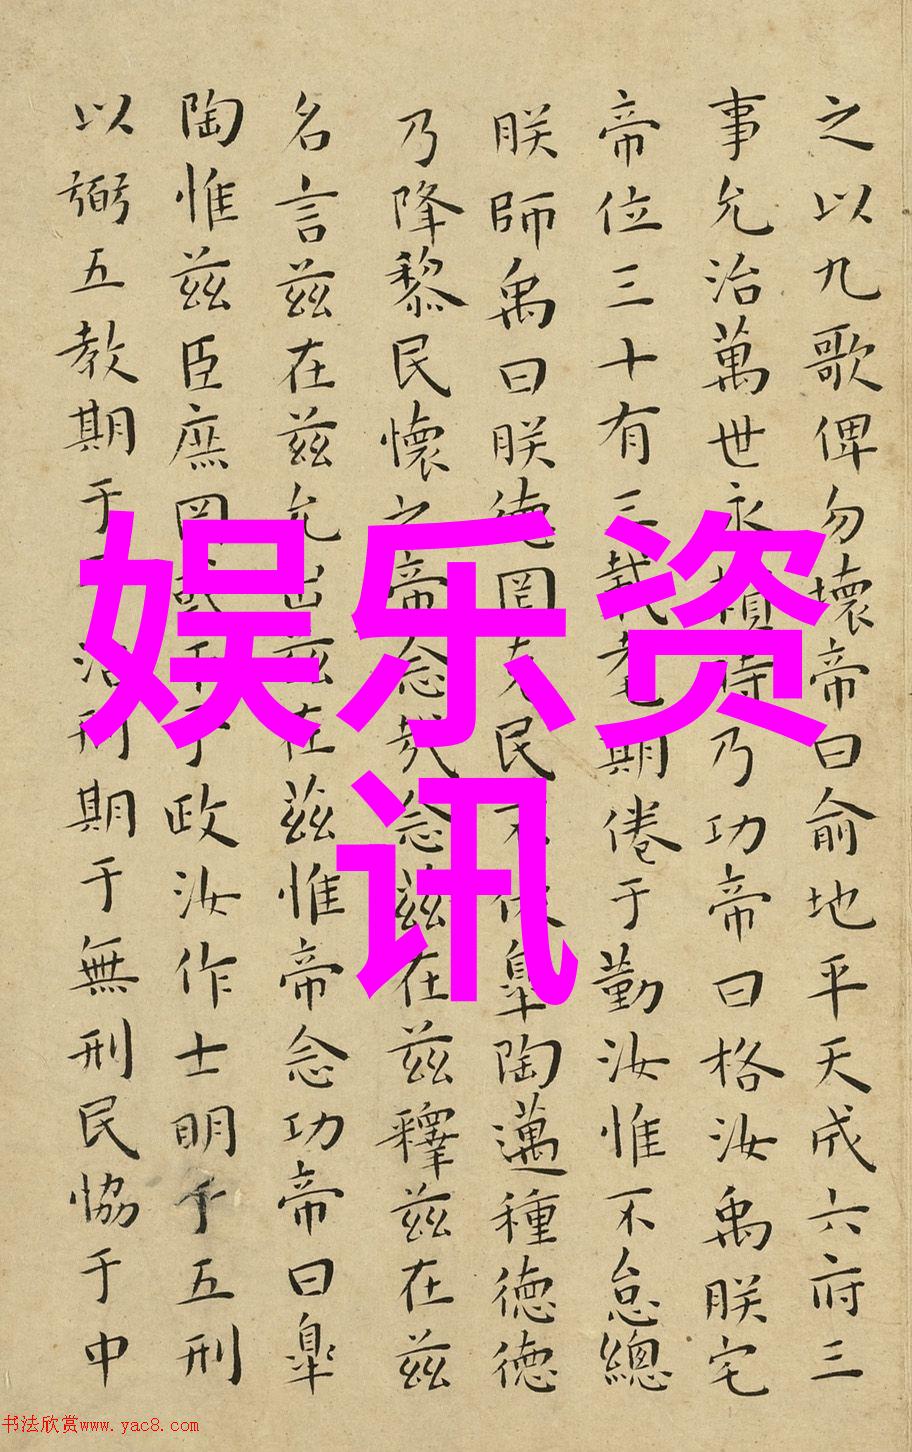 之以九歌俾勿壞帝曰俞地平天成六府三
事允治萬世永賴時乃功帝曰格汝禹朕宅
帝位三十有三載耄期倦于勤汝惟不怠總
朕師禹曰朕德罔克民不依皐陶邁種德德
乃降黎民懷之帝念哉念兹在兹釋兹在兹
名言兹在兹允出兹在兹惟帝念功帝曰皐
陶惟兹臣庶罔或干予政汝作士明于五刑
以弼五教期于予治刑期于無刑民恊于中
娱乐资
讯
书法欣赏www.yac8.com